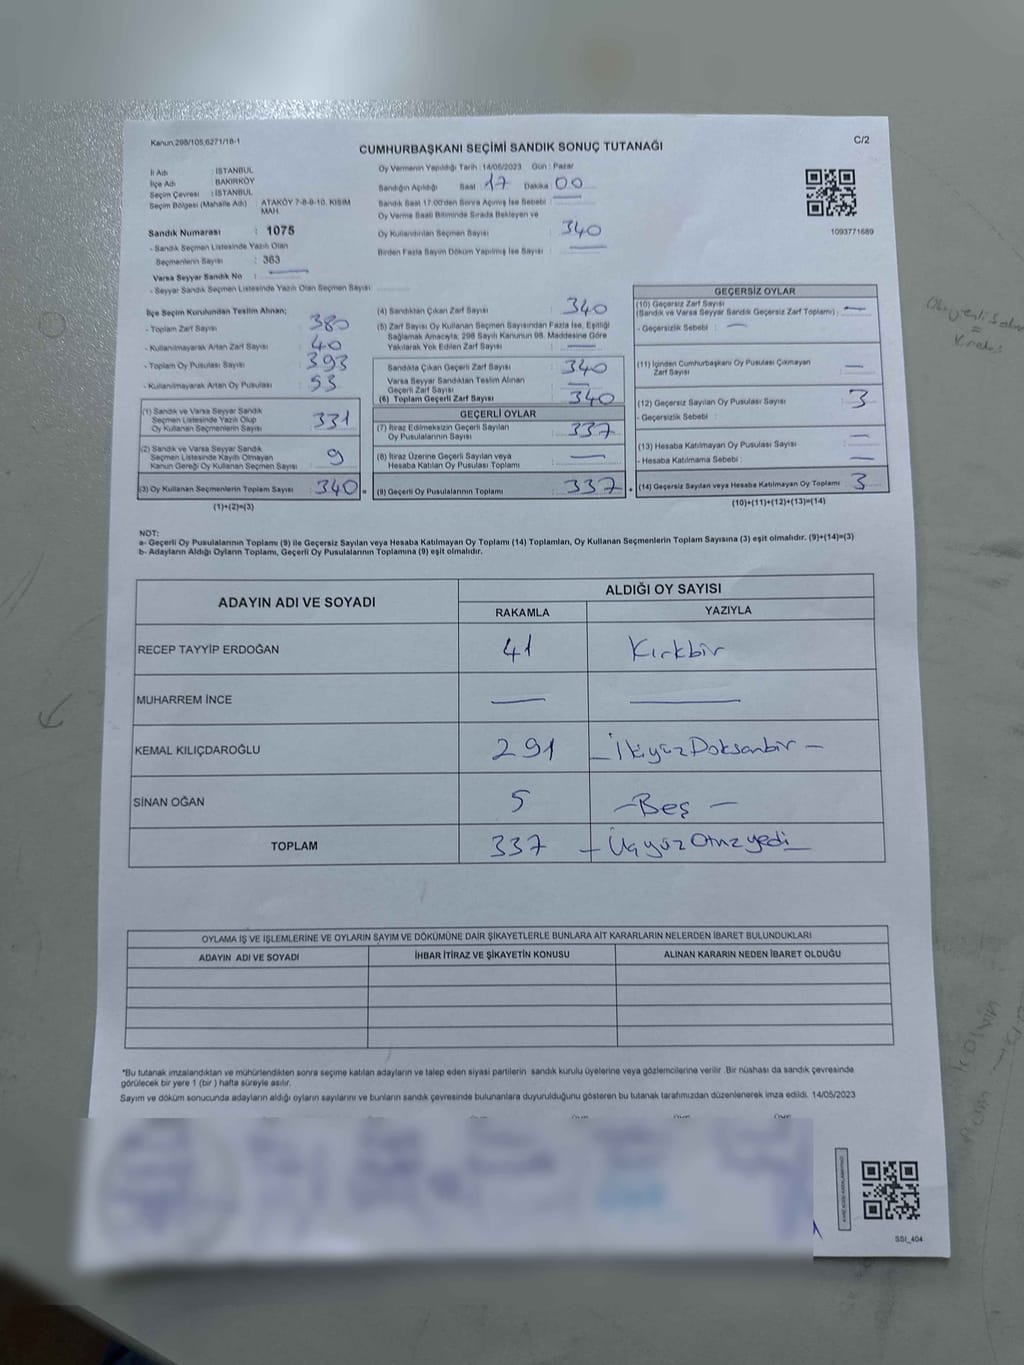 Kanun.298/105,6271/18-1
CUMHURBAŞKANI SEÇİMİ SANDIK SONUÇ TUTANAĞI
C/2
İl Adı : İSTANBUL
İlçe Adı : BAKIRKÖY
Seçim Çevresi : İSTANBUL
Seçim Bölgesi (Mahalle Adı) : ATAKÖY 7-8-9-10. KISIM MAH.
Sandık Numarası : 1075
- Sandık Seçmen Listesinde Yazılı Olan
Seçmenlerin Sayısı : 363
Varsa Seyyar Sandık No : —
- Seyyar Sandık Seçmen Listesinde Yazılı Olan Seçmen Sayısı:
Oy Vermenin Yapıldığı Tarih : 14/05/2023 Gün : Pazar
Sandığın Açıldığı Saat : 17 Dakika 00
Sandık Saat 17:00'den Sonra Açılmış İse Sebebi : —
Oy Verme Saati Bitiminde Sırada Bekleyen ve
Oy Kullandırılan Seçmen Sayısı : 340
Birden Fazla Sayım Döküm Yapılmış İse Sayısı : —
1093771689
İlçe Seçim Kurulundan Teslim Alınan;
- Toplam Zarf Sayısı : 380
- Kullanılmayarak Artan Zarf Sayısı : 40
- Toplam Oy Pusulası Sayısı : 393
- Kullanılmayarak Artan Oy Pusulası : 53
(1) Sandık ve Varsa Seyyar Sandık
Seçmen Listesinde Yazılı Olup
Oy Kullanan Seçmenlerin Sayısı : 331
(2) Sandık ve Varsa Seyyar Sandık
Seçmen Listesinde Kayıtlı Olmayan
Kanun Gereği Oy Kullanan Seçmen Sayısı : 9
(3) Oy Kullanan Seçmenlerin Toplam Sayısı : 340 =
(1)+(2)=(3)
(4) Sandıktan Çıkan Zarf Sayısı : 340
(5) Zarf Sayısı Oy Kullanan Seçmen Sayısından Fazla İse, Eşitliği
Sağlamak Amacıyla; 298 Sayılı Kanunun 98. Maddesine Göre
Yakılarak Yok Edilen Zarf Sayısı : —
Sandıkta Çıkan Geçerli Zarf Sayısı : 340
Varsa Seyyar Sandıktan Teslim Alınan
Geçerli Zarf Sayısı : —
(6) Toplam Geçerli Zarf Sayısı : 340
GEÇERLİ OYLAR
(7) İtiraz Edilmeksizin Geçerli Sayılan
Oy Pusulalarının Sayısı : 337
(8) İtiraz Üzerine Geçerli Sayılan veya
Hesaba Katılan Oy Pusulası Toplamı : —
(9) Geçerli Oy Pusulalarının Toplamı : 337 +
GEÇERSİZ OYLAR
(10) Geçersiz Zarf Sayısı
(Sandık ve Varsa Seyyar Sandık Geçersiz Zarf Toplamı) : —
- Geçersizlik Sebebi : —
(11) İçinden Cumhurbaşkanı Oy Pusulası Çıkmayan
Zarf Sayısı : —
(12) Geçersiz Sayılan Oy Pusulası Sayısı : 3
- Geçersizlik Sebebi :
(13) Hesaba Katılmayan Oy Pusulası Sayısı : —
- Hesaba Katılmama Sebebi : —
(14) Geçersiz Sayılan veya Hesaba Katılmayan Oy Toplamı : 3
(10)+(11)+(12)+(13)=(14)
NOT:
a- Geçerli Oy Pusulalarının Toplamı (9) ile Geçersiz Sayılan veya Hesaba Katılmayan Oy Toplamı (14) Toplamları, Oy Kullanan Seçmenlerin Toplam Sayısına (3) eşit olmalıdır. (9)+(14)=(3)
b- Adayların Aldığı Oyların Toplamı, Geçerli Oy Pusulalarının Toplamına (9) eşit olmalıdır.
ADAYIN ADI VE SOYADI
ALDIĞI OY SAYISI
RAKAMLA YAZIYLA
RECEP TAYYİP ERDOĞAN 41 Kırkbir
MUHARREM İNCE — —
KEMAL KILIÇDAROĞLU 291 – İkiyüzDoksanbir –
SİNAN OĞAN 5 – Beş –
TOPLAM 337 – ÜçyüzOtuzyedi –
OYLAMA İŞ VE İŞLEMLERİNE VE OYLARIN SAYIM VE DÖKÜMÜNE DAİR ŞİKAYETLERLE BUNLARA AİT KARARLARIN NELERDEN İBARET BULUNDUKLARI
ADAYIN ADI VE SOYADI İHBAR İTİRAZ VE ŞİKAYETİN KONUSU ALINAN KARARIN NEDEN İBARET OLDUĞU
"Bu tutanak imzalandıktan ve mühürlendikten sonra seçime katılan adayların ve talep eden siyasi partilerin sandık kurulu üyelerine veya gözlemcilerine verilir. Bir nüshası da sandık çevresinde
görülecek bir yere 1 (bir ) hafta süreyle asılır.
Sayım ve döküm sonucunda adayların aldığı oyların sayılarını ve bunların sandık çevresinde bulunanlara duyurulduğunu gösteren bu tutanak tarafımızdan düzenlenerek imza edildi. 14/05/2023
SSI_404